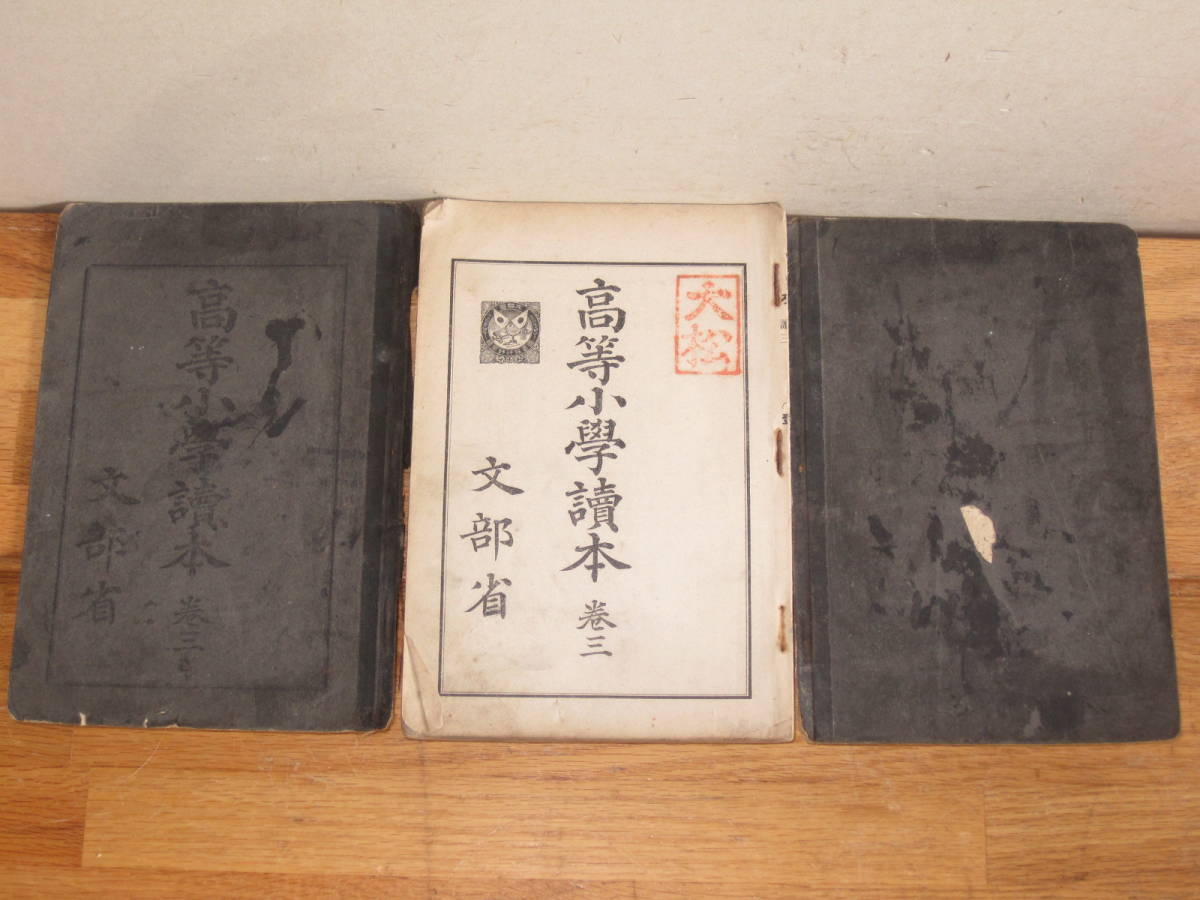 高等小學讀本 卷三
文部省
大松
高等小學讀本 卷三
文部省